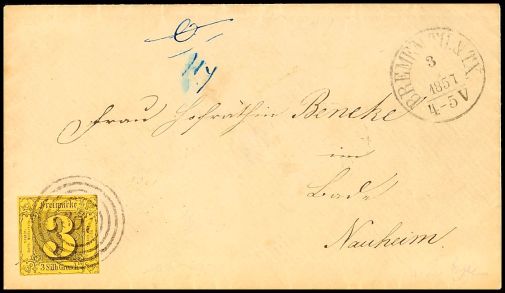 BREMEN TH. & TX.
3
1857
4-5 V
Frau Hofräthin Beneke
im
Bade
Nauheim.
Freimarke
3
3 Silb. Grosch.